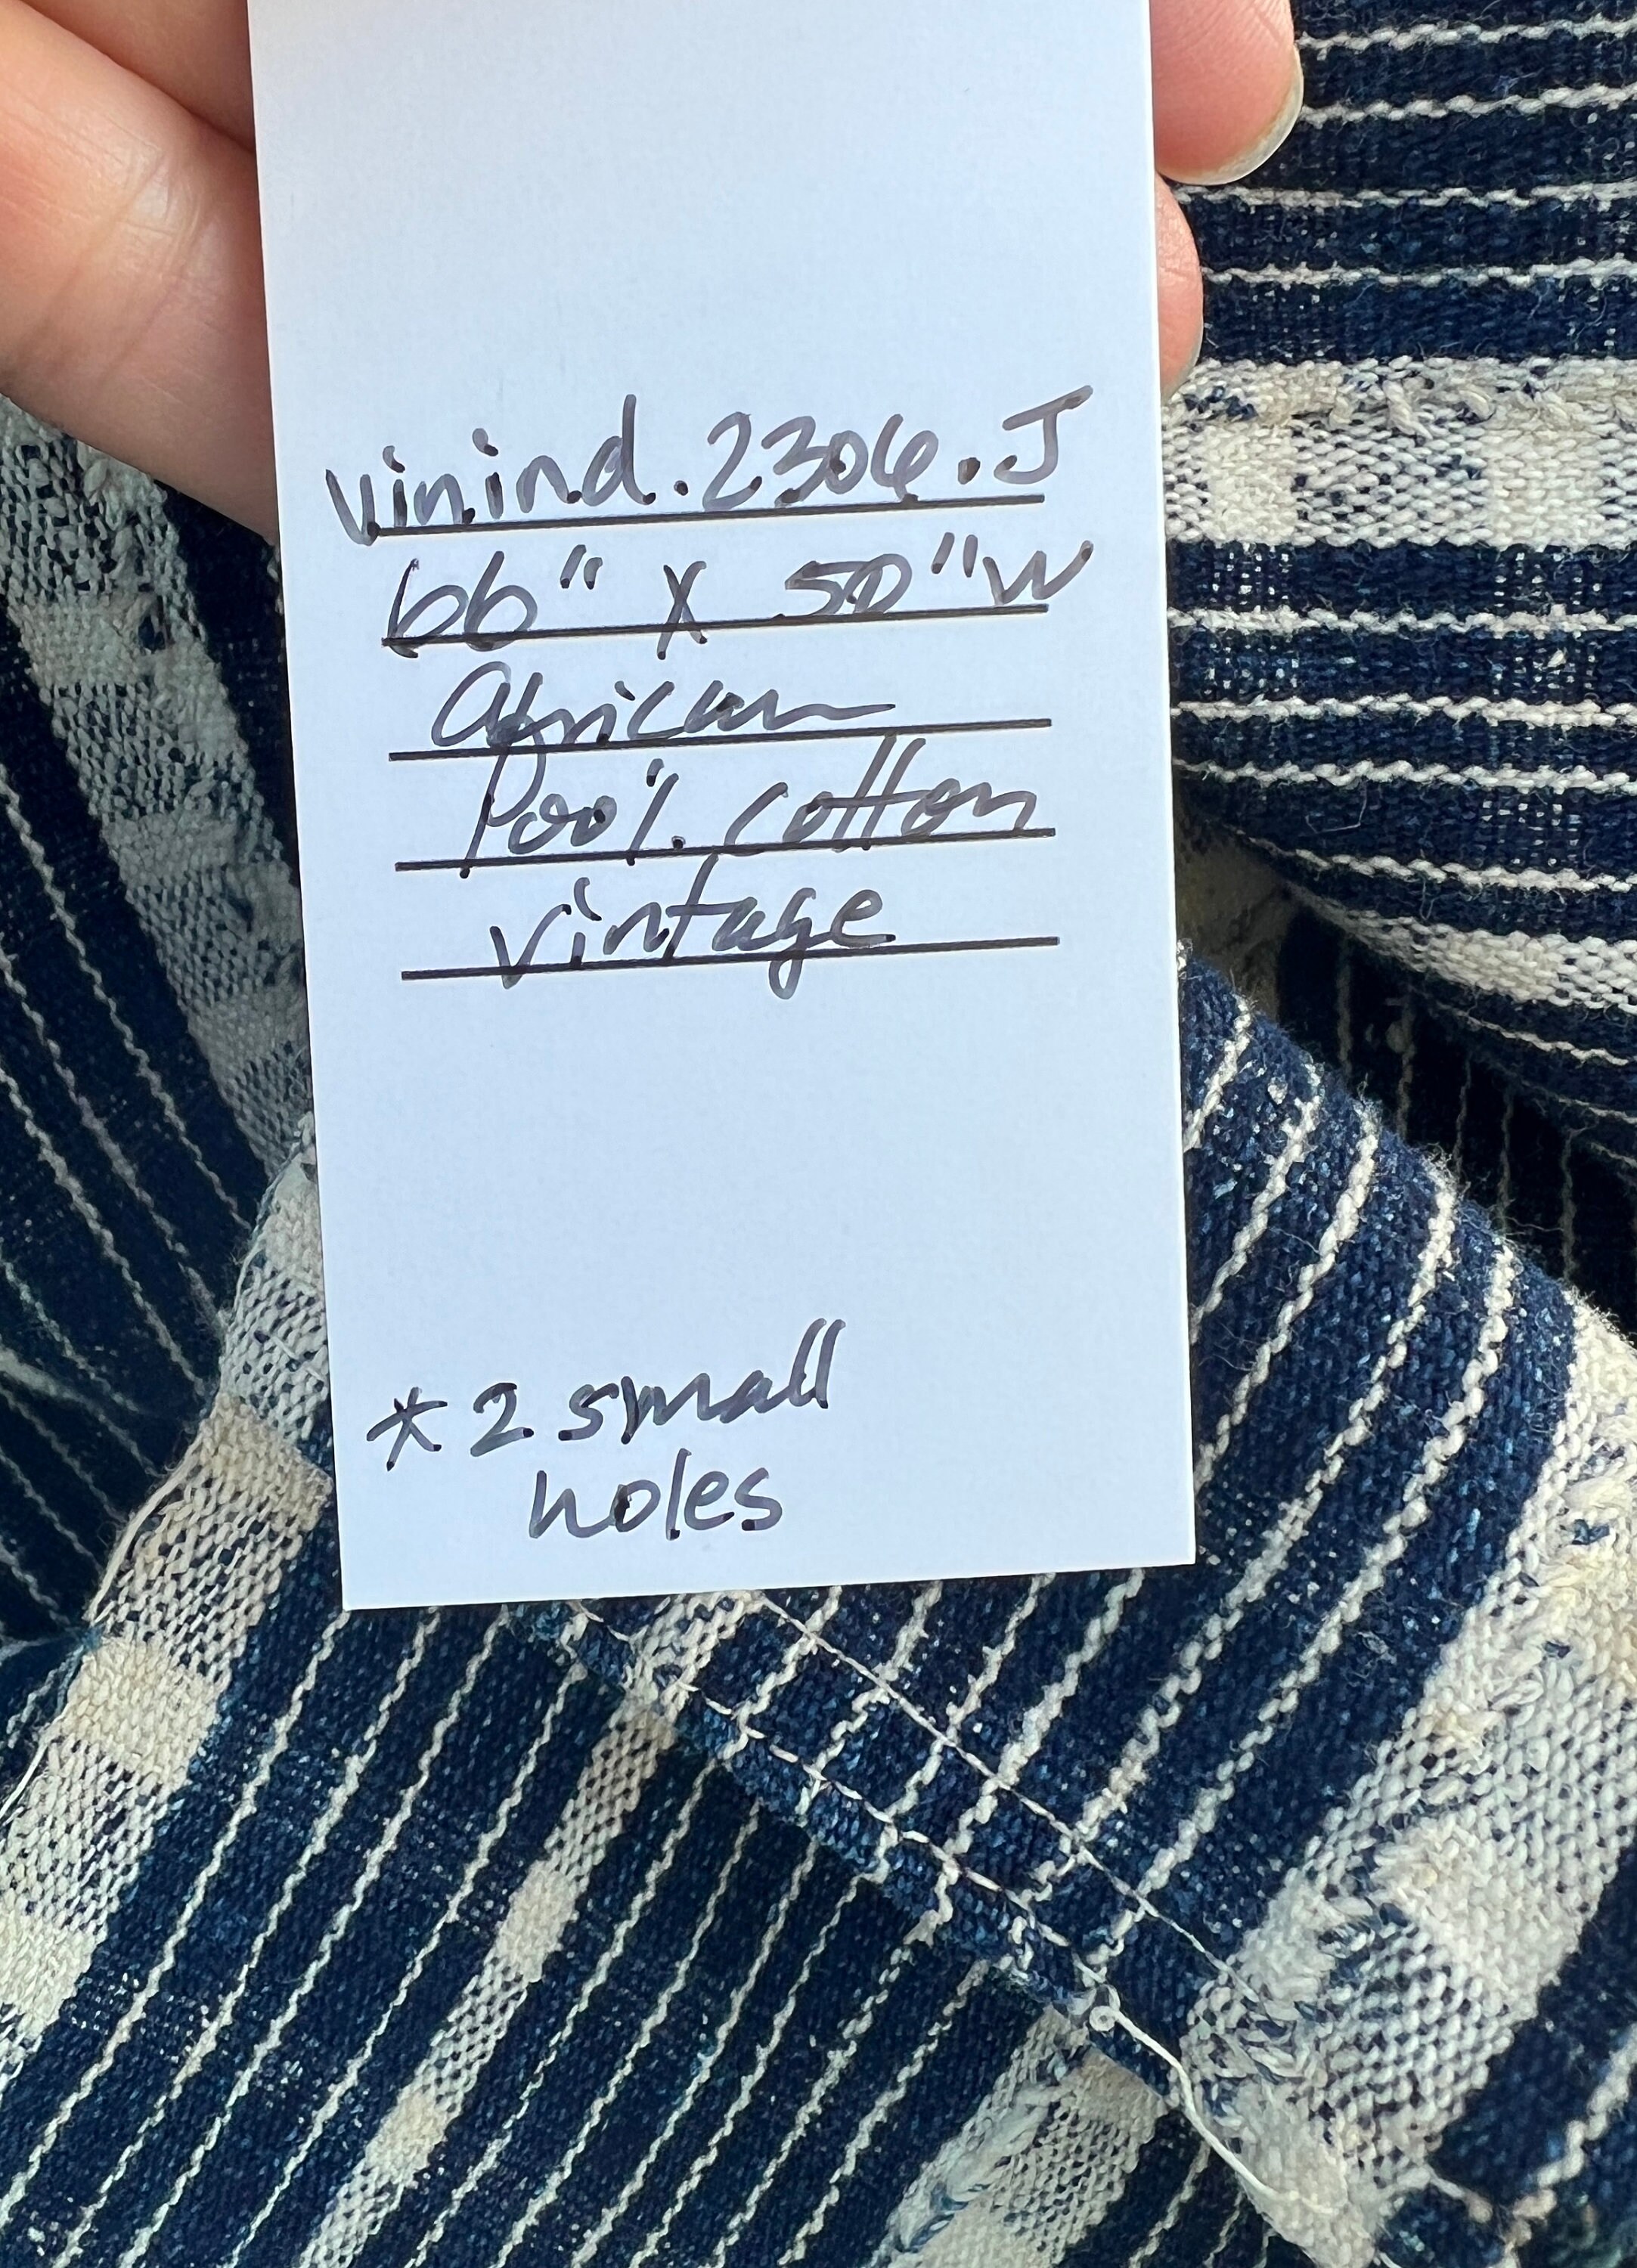 vinind.2306.J
66" X 50"W
African
100%. cotton
vintage
* 2 small
holes